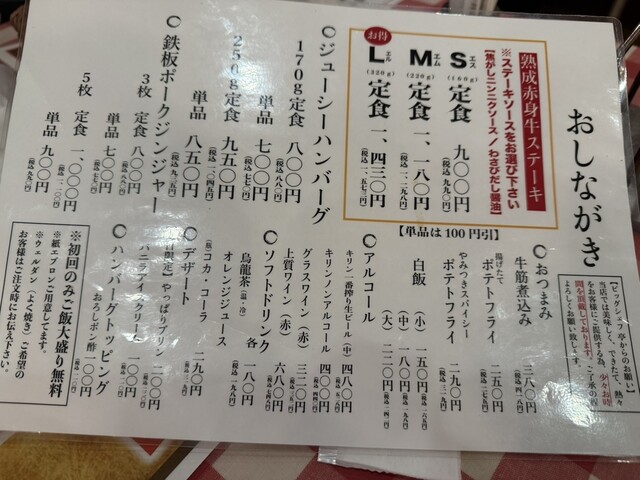 おしながき
【ビッグシェフ亭からのお願い】
当店では美味しく、できたて、熱々
をお客様にご提供する為、少々お時
間を頂戴しております。ご了承の程
よろしくお願い致します。
熟成赤身牛ステーキ
※ステーキソースをお選び下さい
【焦がしニンニクソース／わさびだし醤油】
S エス (160g) 定食 九〇〇円 (税込 九九〇円)
M エム (220g) 定食 一、一八〇円 (税込 一、二九八円)
お得
L エル (320g) 定食 一、四三〇円 (税込 一、五七三円)
【単品は100円引】
○ジューシーハンバーグ
170g定食 八〇〇円 (税込 八八〇円)
単品 七〇〇円 (税込 七七〇円)
250g定食 九五〇円 (税込 一、〇四五円)
単品 八五〇円 (税込 九三五円)
○鉄板ポークジンジャー
3枚 定食 八〇〇円 (税込 八八〇円)
単品 七〇〇円 (税込 七七〇円)
5枚 定食 一、〇〇〇円 (税込 一、一〇〇円)
単品 九〇〇円 (税込 九九〇円)
○おつまみ
牛筋煮込み 三八〇円 (税込 四一八円)
揚げたて
ポテトフライ 二五〇円 (税込 二七五円)
やみつきスパイシー
ポテトフライ 二九〇円 (税込 三一九円)
白飯 (小) 一五〇円 (税込 一六五円)
(中) 一八〇円 (税込 一九八円)
(大) 二二〇円 (税込 二四二円)
○アルコール
キリン一番搾り生ビール (中) 四八〇円
キリンノンアルコール 四〇〇円 (税込 四四〇円)
グラスワイン (赤) 三二〇円 (税込 三五二円)
上質ワイン (赤) 六八〇円 (税込 七四八円)
○ソフトドリンク 各 一八〇円 (税込 一九八円)
烏龍茶 (温・冷)
オレンジジュース
コカ・コーラ
○デザート
やっぱりプリン 二九〇円
バニラアイスクリーム 二〇〇円
○ハンバーグトッピング
おろしポン酢 一〇〇円
※初回のみご飯大盛り無料
※紙エプロンご用意してます。
※ウェルダン（よく焼き）ご希望の
お客様はご注文時にお伝え下さい。